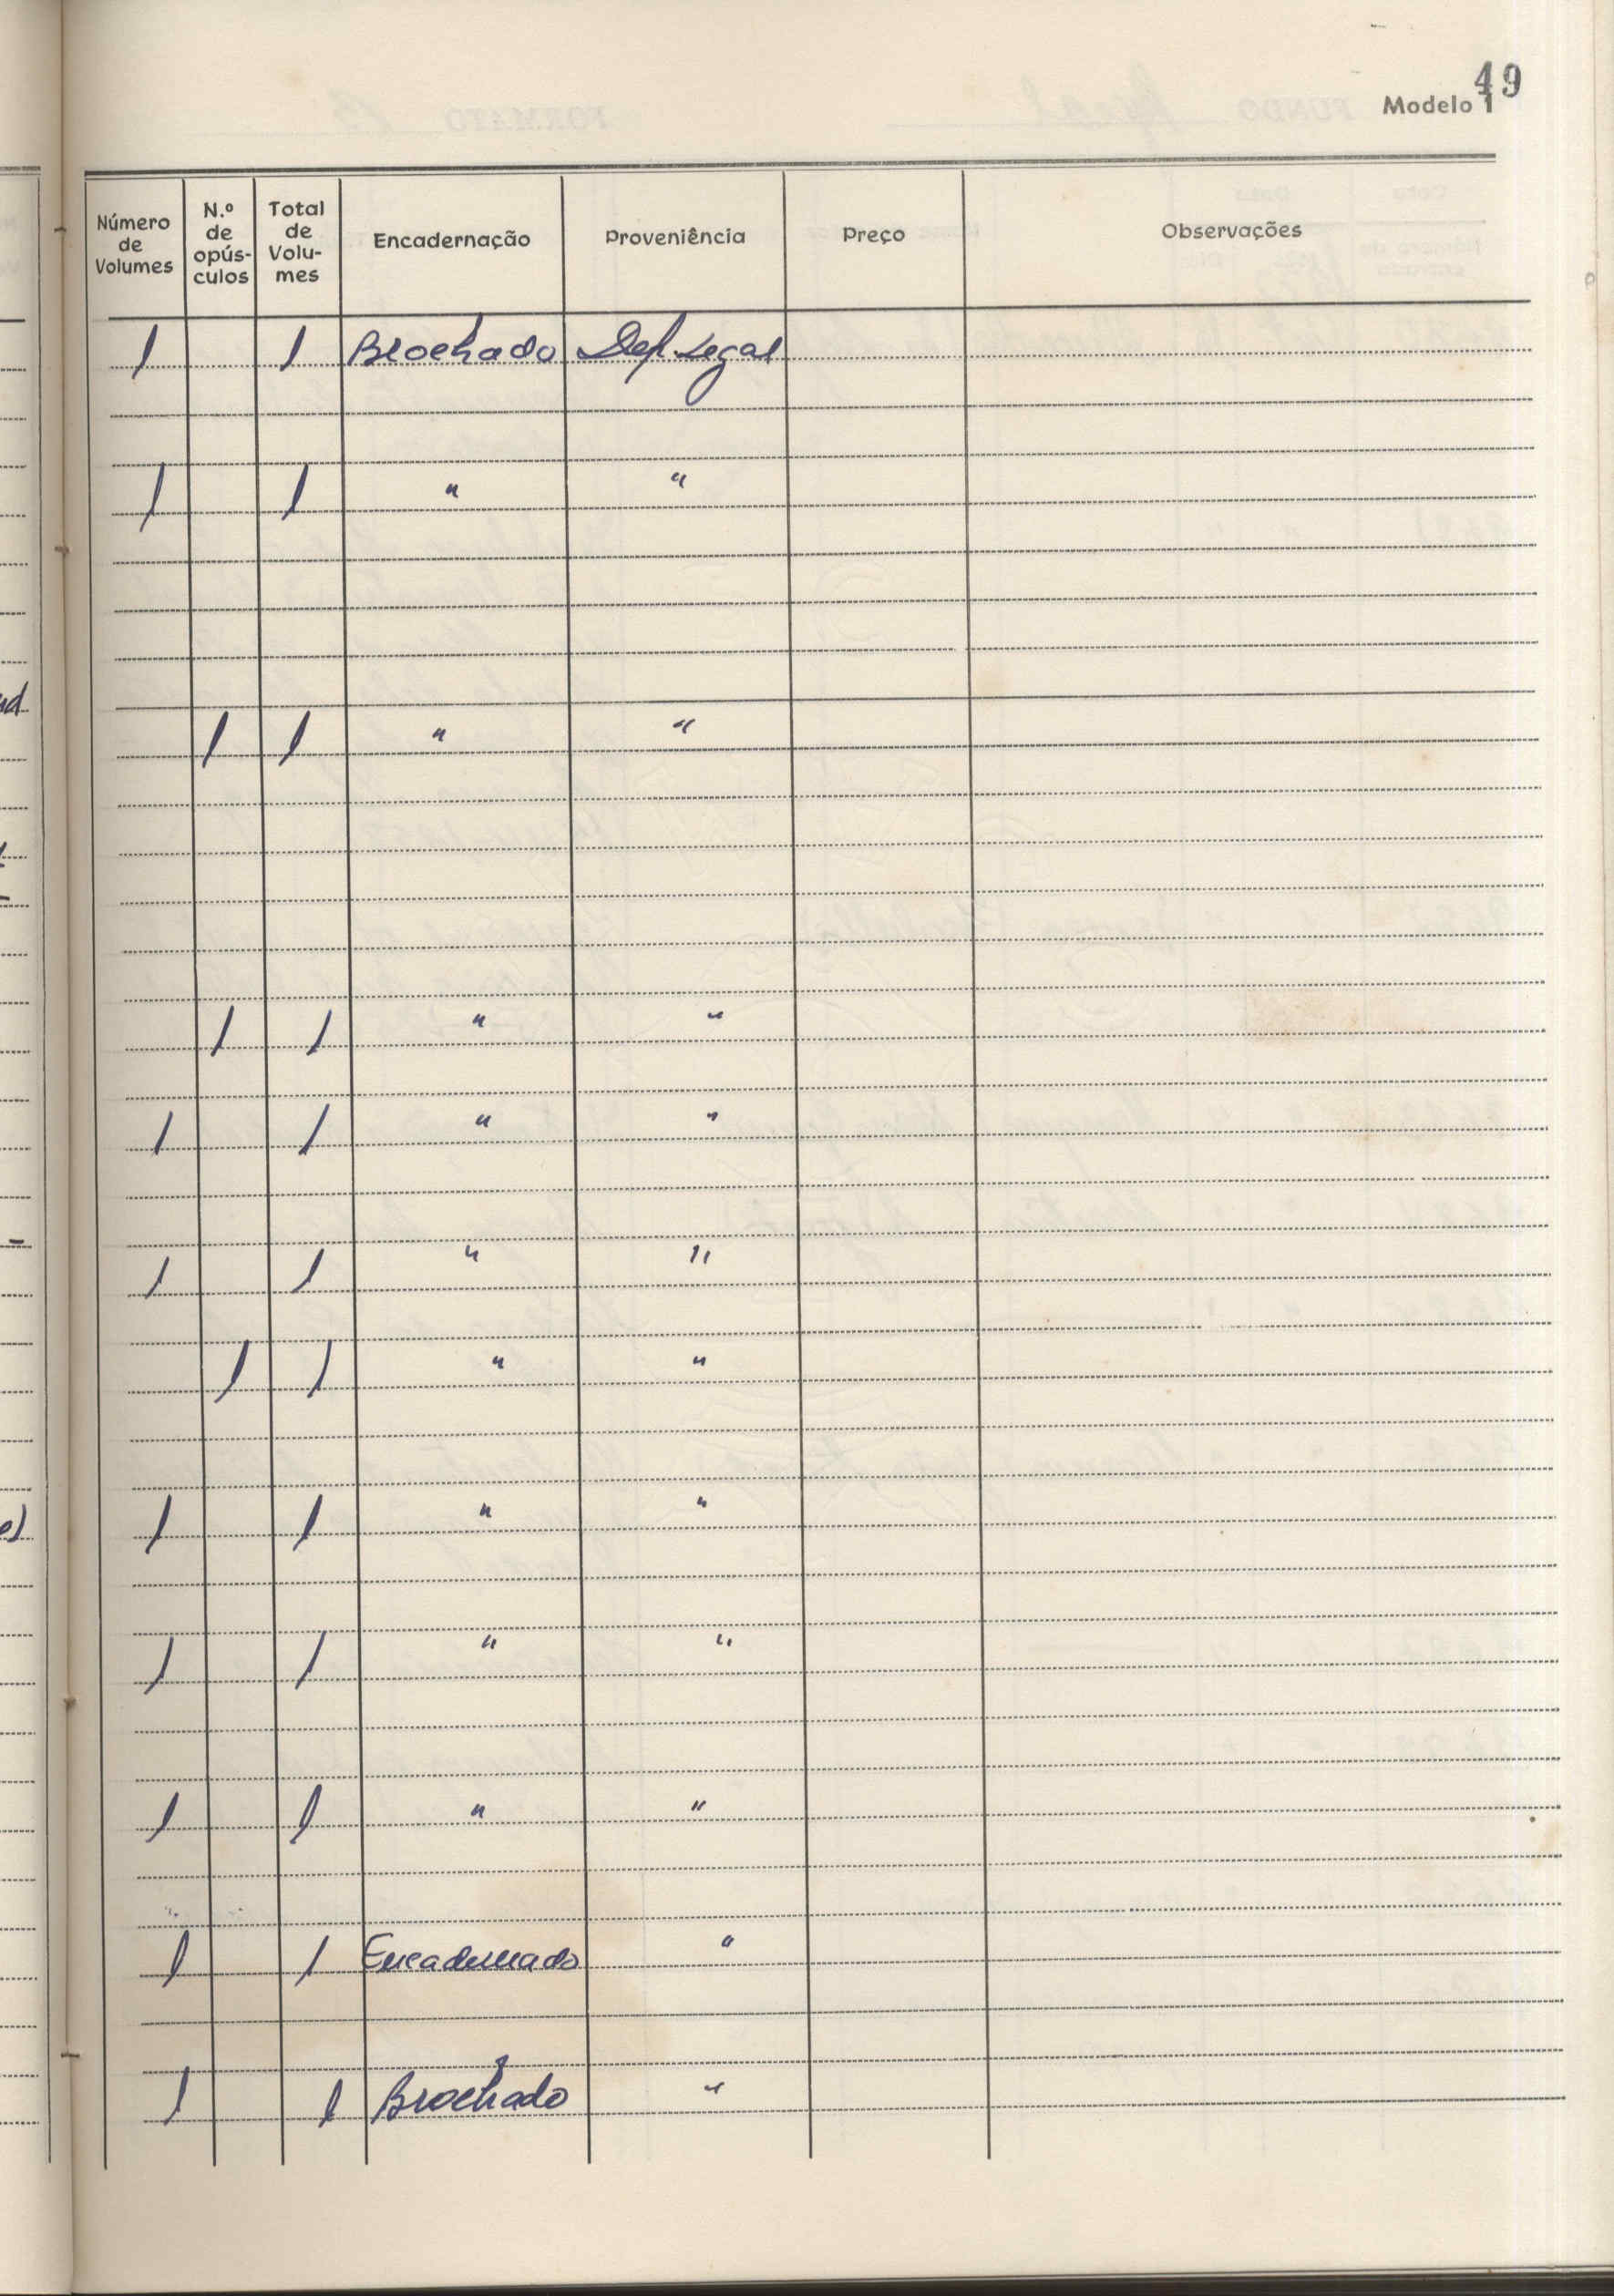 49
Modelo 1
Número de Volumes | N.º de opús-culos | Total de Volu-mes | Encadernação | Proveniência | Preço | Observações
1 | | 1 | Brochado | Dep. Legal
1 | | 1 | " | "
| 1 | 1 | " | "
| 1 | 1 | " | "
1 | | 1 | " | "
1 | | 1 | " | "
| 1 | 1 | " | "
1 | | 1 | " | "
1 | | 1 | " | "
1 | | 1 | " | "
1 | | 1 | Encadernado | "
1 | | 1 | Brochado | "